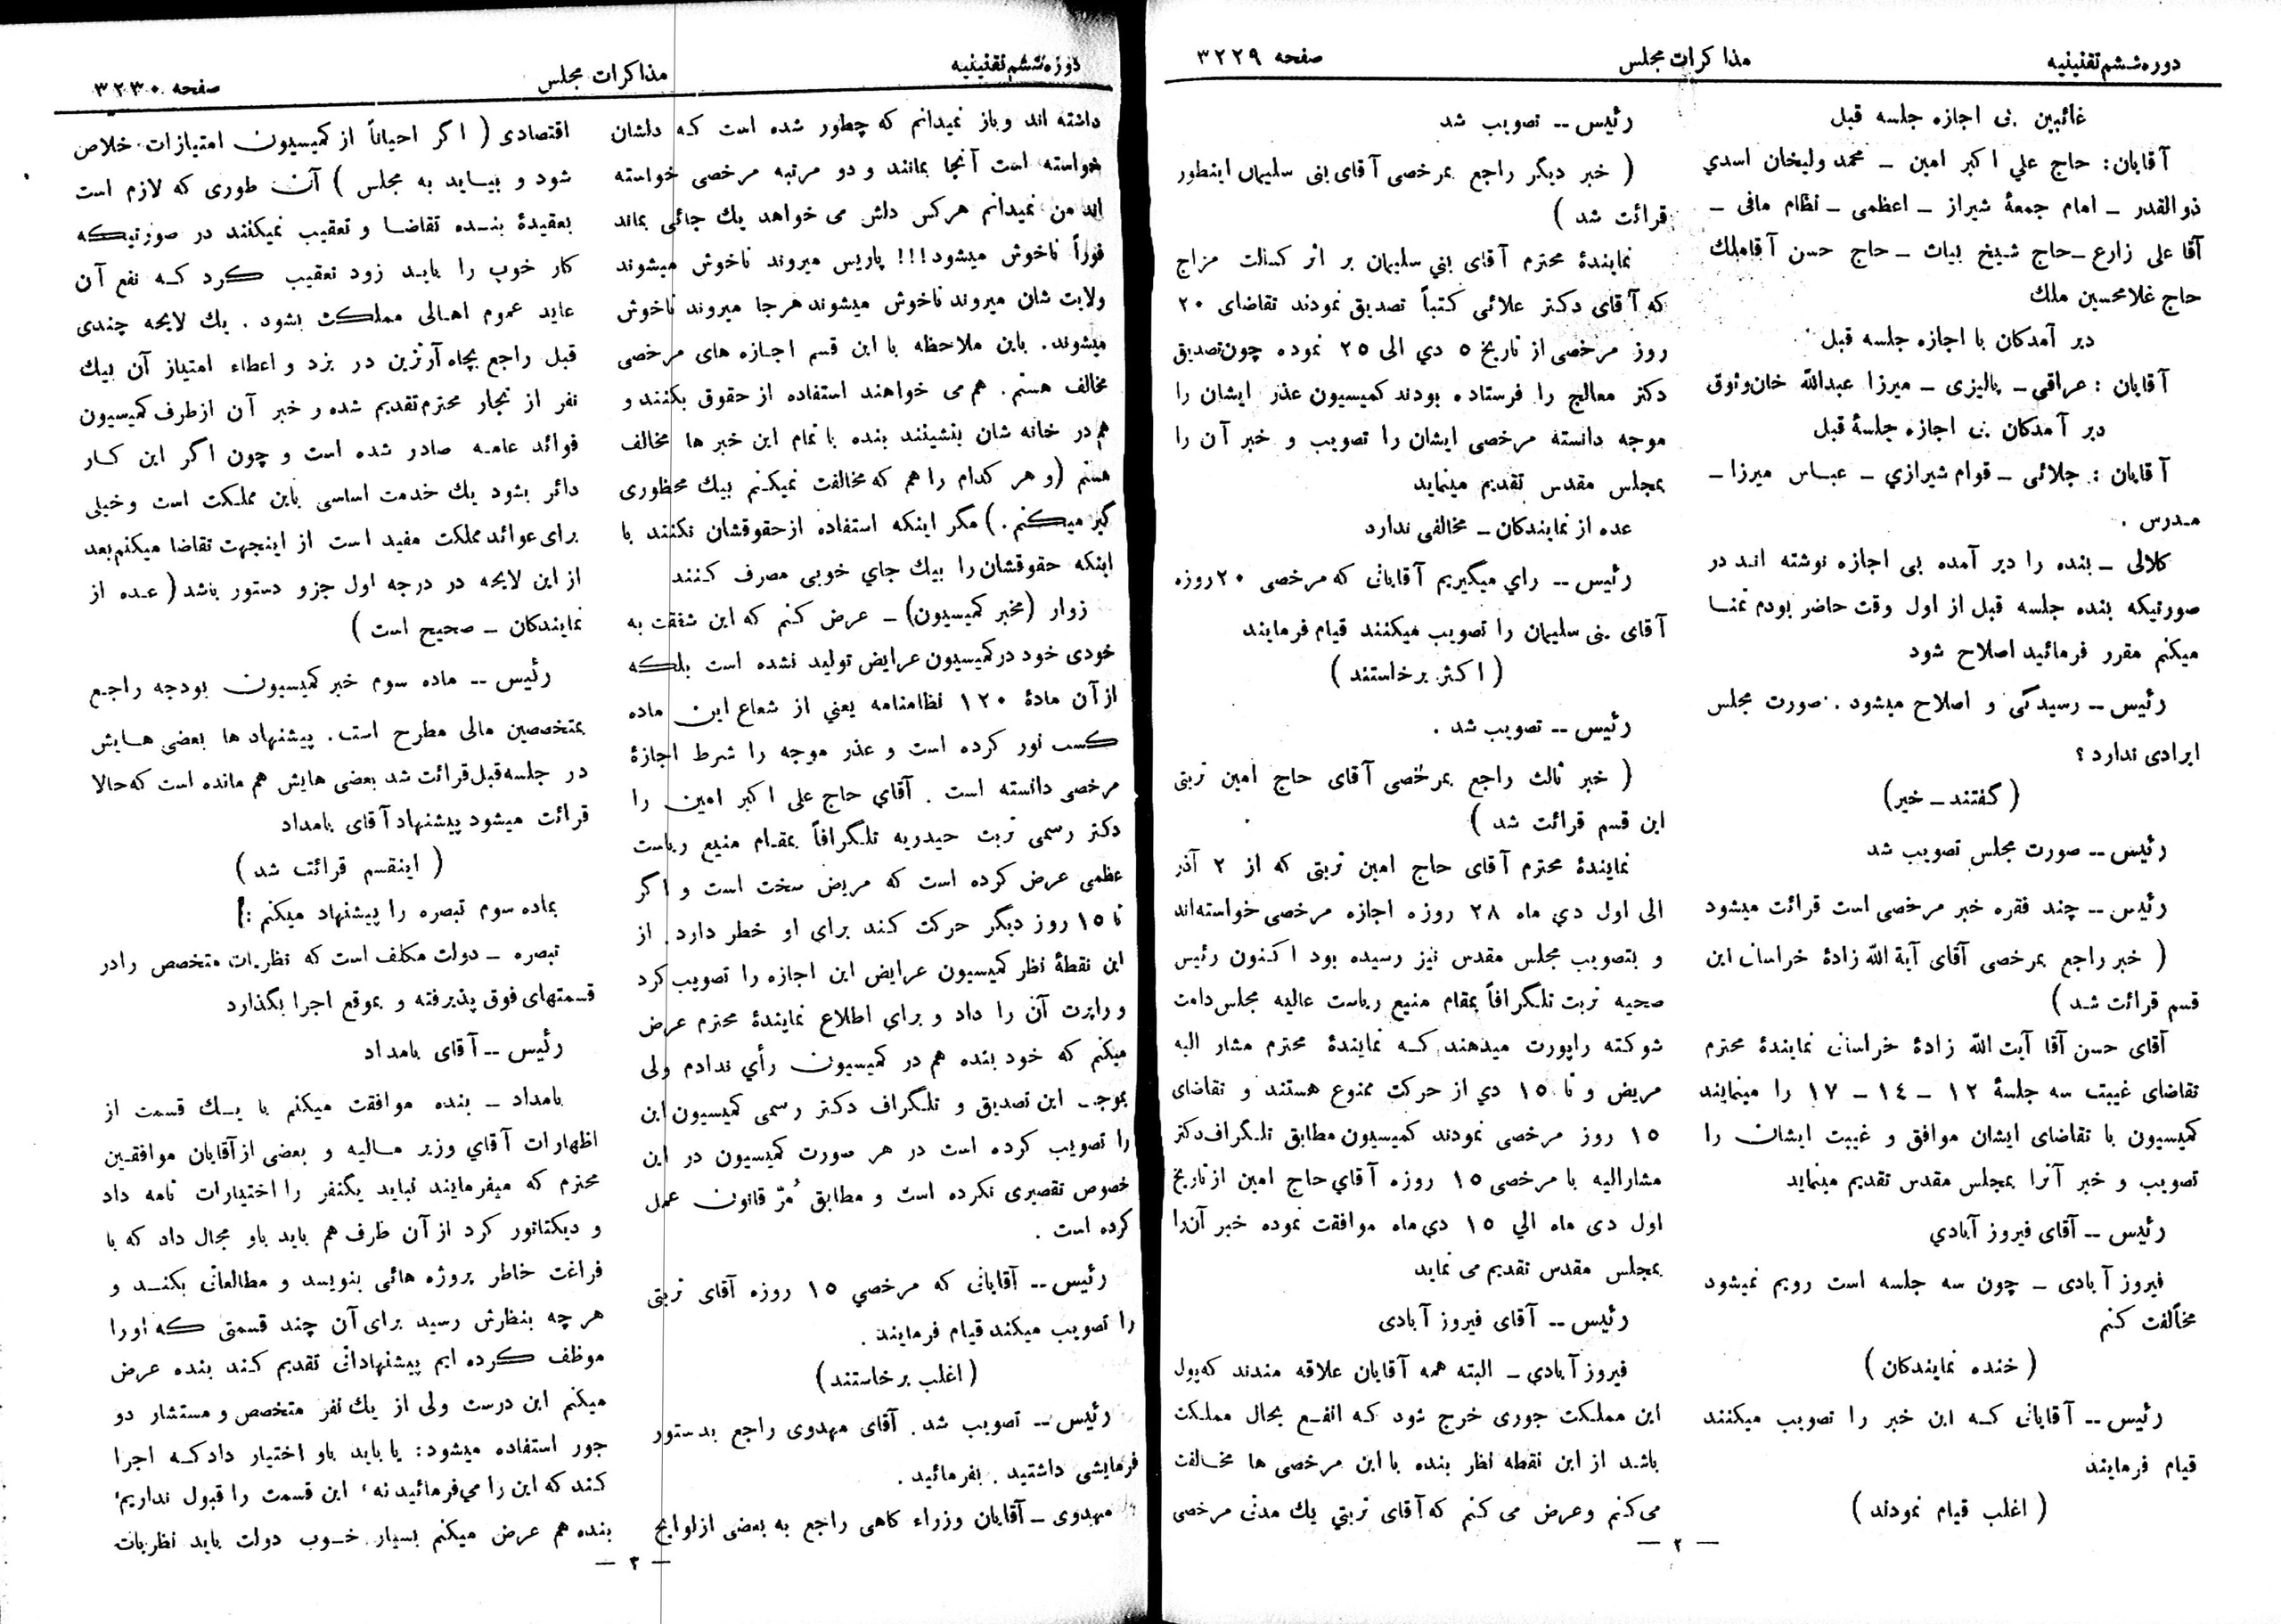 دوره ششم تقنینیه
مذاکرات مجلس
صفحه ۳۲۲۹
غائبین بی اجازه جلسه قبل
آقایان: حاج علي اکبر امین ـ محمد ولیخان اسدي
ذوالقدر ـ امام جمعهٔ شیراز ـ اعظمی ـ نظام مافی ـ
آقا علی زارع ـ حاج شیخ بیات ـ حاج حسن آقاملك
حاج غلامحسین ملك
دیر آمدکان با اجازه جلسه قبل
آقایان : عراقی ـ پالیزی ـ میرزا عبدالله خان وثوق
دیر آمدکان بی اجازه جلسهٔ قبل
آقایان : جلائی ـ قوام شیرازي ـ عباس میرزا ـ
مدرس .
کلالی ـ بنده را دیر آمده بی اجازه نوشته اند در
صورتیکه بنده جلسه قبل از اول وقت حاضر بودم تمنا
میکنم مقرر فرمائید اصلاح شود
رئیس ــ رسیدگی و اصلاح میشود . صورت مجلس
ایرادی ندارد ؟
( گفتند ـ خیر)
رئیس ــ صورت مجلس تصویب شد
رئیس ــ چند فقره خبر مرخصی است قرائت میشود
( خبر راجع بمرخصی آقای آیة الله زادهٔ خراسانی این
قسم قرائت شد )
آقای حسن آقا آیت الله زادهٔ خراسانی نمایندهٔ محترم
تقاضای غیبت سه جلسهٔ ١٢ ـ ١٤ ـ ١٧ را مینمایند
کمیسیون با تقاضای ایشان موافق و غیبت ایشان را
تصویب و خبر آنرا بمجلس مقدس تقدیم مینماید
رئیس ــ آقای فیروز آبادي
فیروز آبادی ـ چون سه جلسه است رویم نمیشود
مخالفت کنم
( خنده نمایندکان )
رئیس ــ آقایانی که این خبر را تصویب میکنند
قیام فرمایند
( اغلب قیام نمودند )
رئیس ــ تصویب شد
( خبر دیگر راجع بمرخصی آقای بنی سلیمان اینطور
قرائت شد )
نمایندهٔ محترم آقای بني سلیمان بر اثر کسالت مزاج
که آقای دکتر علائی کتباً تصدیق نمودند تقاضای ٢٠
روز مرخصی از تاریخ ٥ دي الی ٢٥ نموده چون تصدیق
دکتر معالج را فرستاده بودند کمیسیون عذر ایشان را
موجه دانسته مرخصی ایشان را تصویب و خبر آن را
بمجلس مقدس تقدیم مینماید
عده از نمایندکان ـ مخالفی ندارد
رئیس ــ راي میگیریم آقایانی که مرخصی ٢٠ روزه
آقای بنی سلیمان را تصویب میکنند قیام فرمایند
( اکثر برخاستند )
رئیس ــ تصویب شد .
( خبر ثالث راجع بمرخصی آقای حاج امین تربتی
این قسم قرائت شد )
نمایندهٔ محترم آقای حاج امین تربتی که از ٢ آذر
الی اول دي ماه ٢٨ روزه اجازه مرخصی خواسته‌اند
و بتصویب مجلس مقدس نیز رسیده بود اکنون رئیس
صحیه تربت تلگرافاً بمقام منیع ریاست عالیه مجلس دامت
شوکته راپورت میدهند که نمایندهٔ محترم مشار الیه
مریض و تا ١٥ دي از حرکت ممنوع هستند و تقاضای
١٥ روز مرخصی نمودند کمیسیون مطابق تلگراف دکتر
مشارالیه با مرخصی ١٥ روزه آقاي حاج امین از تاریخ
اول دی ماه الي ١٥ دی ماه موافقت نموده خبر آن را
بمجلس مقدس تقدیم می نماید
رئیس ــ آقای فیروز آبادی
فیروز آبادي ـ البته همه آقایان علاقه مندند که پول
این مملکت جوری خرج شود که انفع بحال مملکت
باشد از این نقطه نظر بنده با این مرخصی ها مخالفت
می کنم و عرض می کنم که آقای تربتي یك مدتی مرخصی
— ٢ —
دوره ششم تقنینیه
مذاکرات مجلس
صفحه ۳۲۳۰
داشته اند و باز نمیدانم که چطور شده است که دلشان
خواسته است آنجا بمانند و دو مرتبه مرخصی خواسته
اند من نمیدانم هرکس دلش می خواهد یك جائی بماند
فوراً ناخوش میشود!!! پاریس میروند ناخوش میشوند
ولایت شان میروند ناخوش میشوند هرجا میروند ناخوش
میشوند. باین ملاحظه با این قسم اجازه های مرخصی
مخالف هستم. هم می خواهند استفاده از حقوق بکنند و
هم در خانه شان بنشینند بنده با تمام این خبر ها مخالف
هستم (و هر کدام را هم که مخالفت نمیکنم بیك محظوری
گیر میکنم.) مگر اینکه استفاده از حقوقشان نکنند با
اینکه حقوقشان را بیك جاي خوبی مصرف کنند
زوار (مخبر کمیسیون) ـ عرض کنم که این شفقت به
خودی خود در کمیسیون عرایض تولید نشده است بلکه
از آن مادهٔ ١٢٠ نظامنامه یعني از شعاع این ماده
کسب نور کرده است و عذر موجه را شرط اجازهٔ
مرخصی دانسته است . آقاي حاج علی اکبر امین را
دکتر رسمی تربت حیدریه تلگرافاً بمقام منیع ریاست
عظمی عرض کرده است که مریض سخت است و اگر
تا ١٥ روز دیگر حرکت کند برای او خطر دارد. از
این نقطهٔ نظر کمیسیون عرایض این اجازه را تصویب کرد
و راپرت آن را داد و براي اطلاع نمایندهٔ محترم عرض
میکنم که خود بنده هم در کمیسیون رأي ندادم ولی
بموجب این تصدیق و تلگراف دکتر رسمی کمیسیون این
را تصویب کرده است در هر صورت کمیسیون در این
خصوص تقصیری نکرده است و مطابق مُرّ قانون عمل
کرده است .
رئیس ــ آقایانی که مرخصي ١٥ روزه آقای تربتی
را تصویب میکند قیام فرمایند .
(اغلب برخاستند)
رئیس ــ تصویب شد. آقای مهدوی راجع بدستور
فرمایشی داشتید . بفرمائید .
مهدوی ـ آقایان وزراء کاهی راجع به بعضی از لوایح
اقتصادی ( اگر احیاناً از کمیسیون امتیازات خلاص
شود و بیاید به مجلس ) آن طوری که لازم است
بعقیدهٔ بنده تقاضا و تعقیب نمیکنند در صورتیکه
کار خوب را باید زود تعقیب کرد که نفع آن
عاید عموم اهالی مملکت بشود . یك لایحه چندی
قبل راجع بچاه آرتزین در یزد و اعطاء امتیاز آن بیك
نفر از تجار محترم تقدیم شده و خبر آن از طرف کمیسیون
فوائد عامه صادر شده است و چون اگر این کار
دائر بشود یك خدمت اساسی باین مملکت است و خیلی
برای عوائد مملکت مفید است از اینجهت تقاضا میکنم بعد
از این لایحه در درجه اول جزو دستور باشد ( عده از
نمایندکان ـ صحیح است )
رئیس ــ ماده سوم خبر کمیسیون بودجه راجع
بمتخصصین مالی مطرح است. پیشنهاد ها بعضی هایش
در جلسه قبل قرائت شد بعضی هایش هم مانده است که حالا
قرائت میشود پیشنهاد آقای یامداد
( اینقسم قرائت شد )
بماده سوم تبصره را پیشنهاد میکنم :
تبصره ـ دولت مکلف است که نظریات متخصص را در
قسمتهای فوق پذیرفته و بموقع اجرا بگذارد
رئیس ــ آقای یامداد
بامداد ـ بنده موافقت میکنم با یك قسمت از
اظهارات آقاي وزیر مالیه و بعضی از آقایان موافقین
محترم که میفرمایند نباید یکنفر را اختیارات تامه داد
و دیکتاتور کرد از آن طرف هم باید باو مجال داد که با
فراغت خاطر پروژه هائی بنویسد و مطالعاتی بکند و
هر چه بنظرش رسید برای آن چند قسمتی که اورا
موظف کرده ایم پیشنهاداتی تقدیم کند بنده عرض
میکنم این درست ولی از یك نفر متخصص و مستشار دو
جور استفاده میشود: یا باید باو اختیار داد که اجرا
کند که این را می‌فرمائید نه، این قسمت را قبول نداریم،
بنده هم عرض میکنم بسیار خوب دولت باید نظریات
— ٣ —